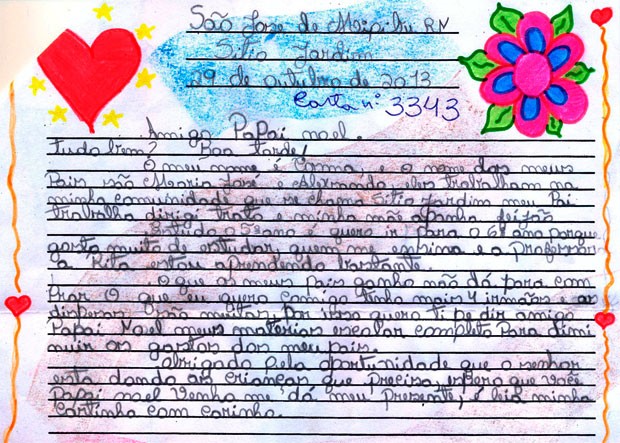 São Jose de Mipibu RN
Sitio Jardim
29 de outubro de 2013
Carta nº 3343
Amigo Papai noel.
Tudo bem? Boa tarde!
O meu nome é e o nome dos meus
Pais são Maria José e Alexsandro eles trabalham na
minha comunidade que se chama Sitio Jardim meu Pai
trabalha dirigi trato e minha mãe apanha feijão
Estudo o 5º ano é quero ir para o 6º ano porque
gosto muito de estudar, quem me ensina e a professor
a Rita estou aprendendo bastante.
O que os meus pais ganha não dá para com
Prar O que eu quero comigo tinha mais 4 irmãos e as
dispesas são muitas Por isso quero ti pedir amigo
Papai Noel meus materias escolar completo Para dimi
nuir os gastos dos meu pais.
Obrigado pela oportunidade que o senhor
esta dando as crianças que precisa, espero que você
Papai noel venha me dá meu presente, e leia minha
cartinha com carinho.